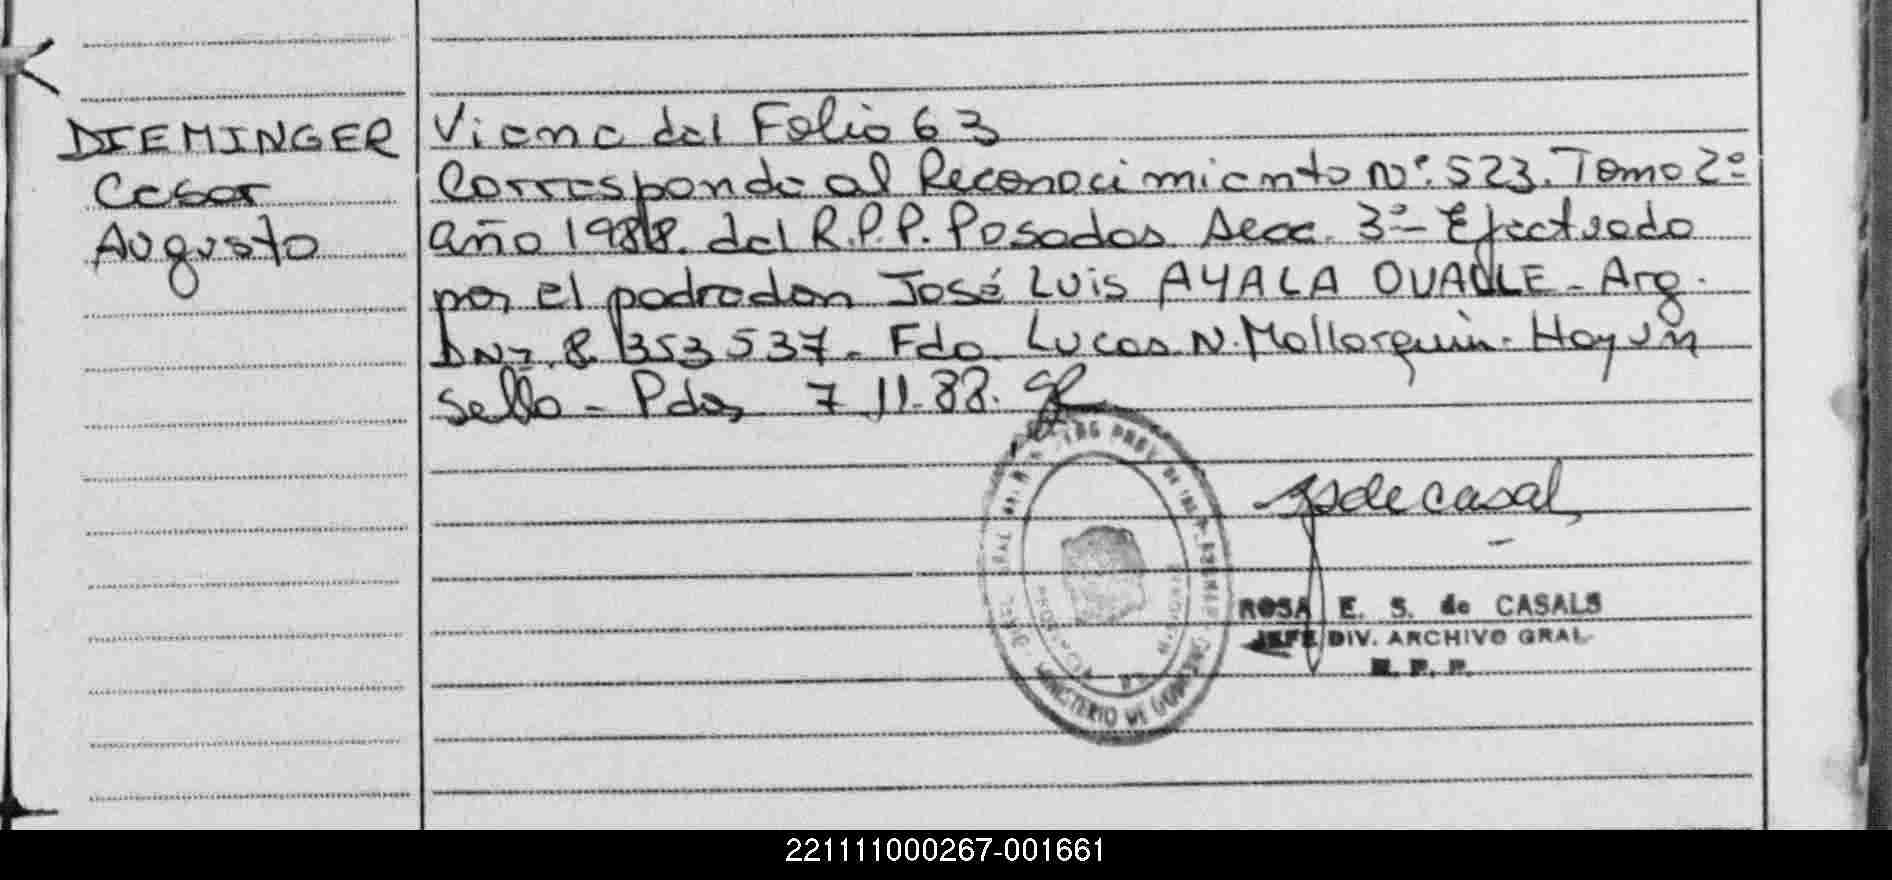 DIEMINGER
Cesar
Augusto
Viene del Folio 63
Corresponde al Reconocimiento Nº. 523. Tomo 2º
año 1988. del R.P.P. Posadas Secc. 3ª- Efectuado
por el padre don José Luis AYALA OVADLE - Arg.
DNI. 8 353 537. Fdo. Lucas N. Mallorquin. Hay un
sello - Pdas, 7 11.88.
MINISTERIO DE
ROSA E. S. de CASALS
JEFE DIV. ARCHIVO GRAL
R. P. P.
221111000267-001661